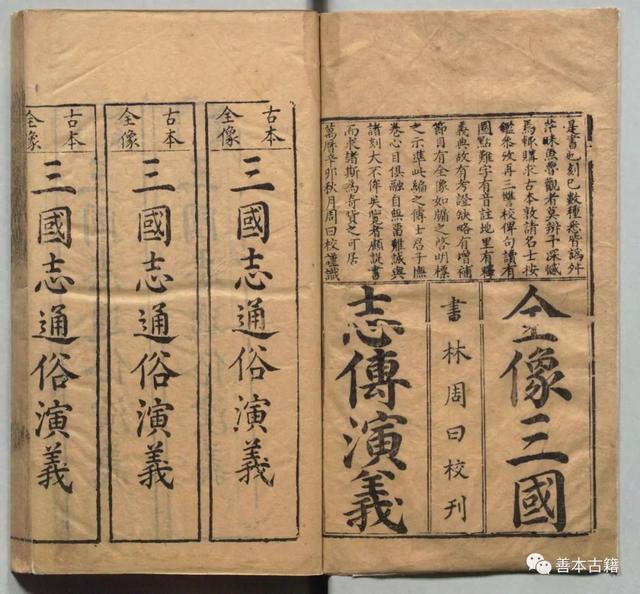 是書也刻已數種悉皆訛舛
茫昧魚魯觀者莫辨予深憾
焉輒購求古本敦請名士按
鑑參攷再三讎校俾句讀有
圈點難字有音註地里有釋
義典故有考證缺略有增補
節目有全像如牖之啓明標
之示準此編之傳士君子撫
卷心目俱融自無留難誠與
諸刻大不侔矣覽者顧諟書
而求諸斯為奇貨之可居
萬曆辛卯秋月周曰校謹識
全像三國
書林周曰校刊
志傳演義
古本
全像
三國志通俗演義
古本
全像
三國志通俗演義
古本
全像
三國志通俗演義
善本古籍